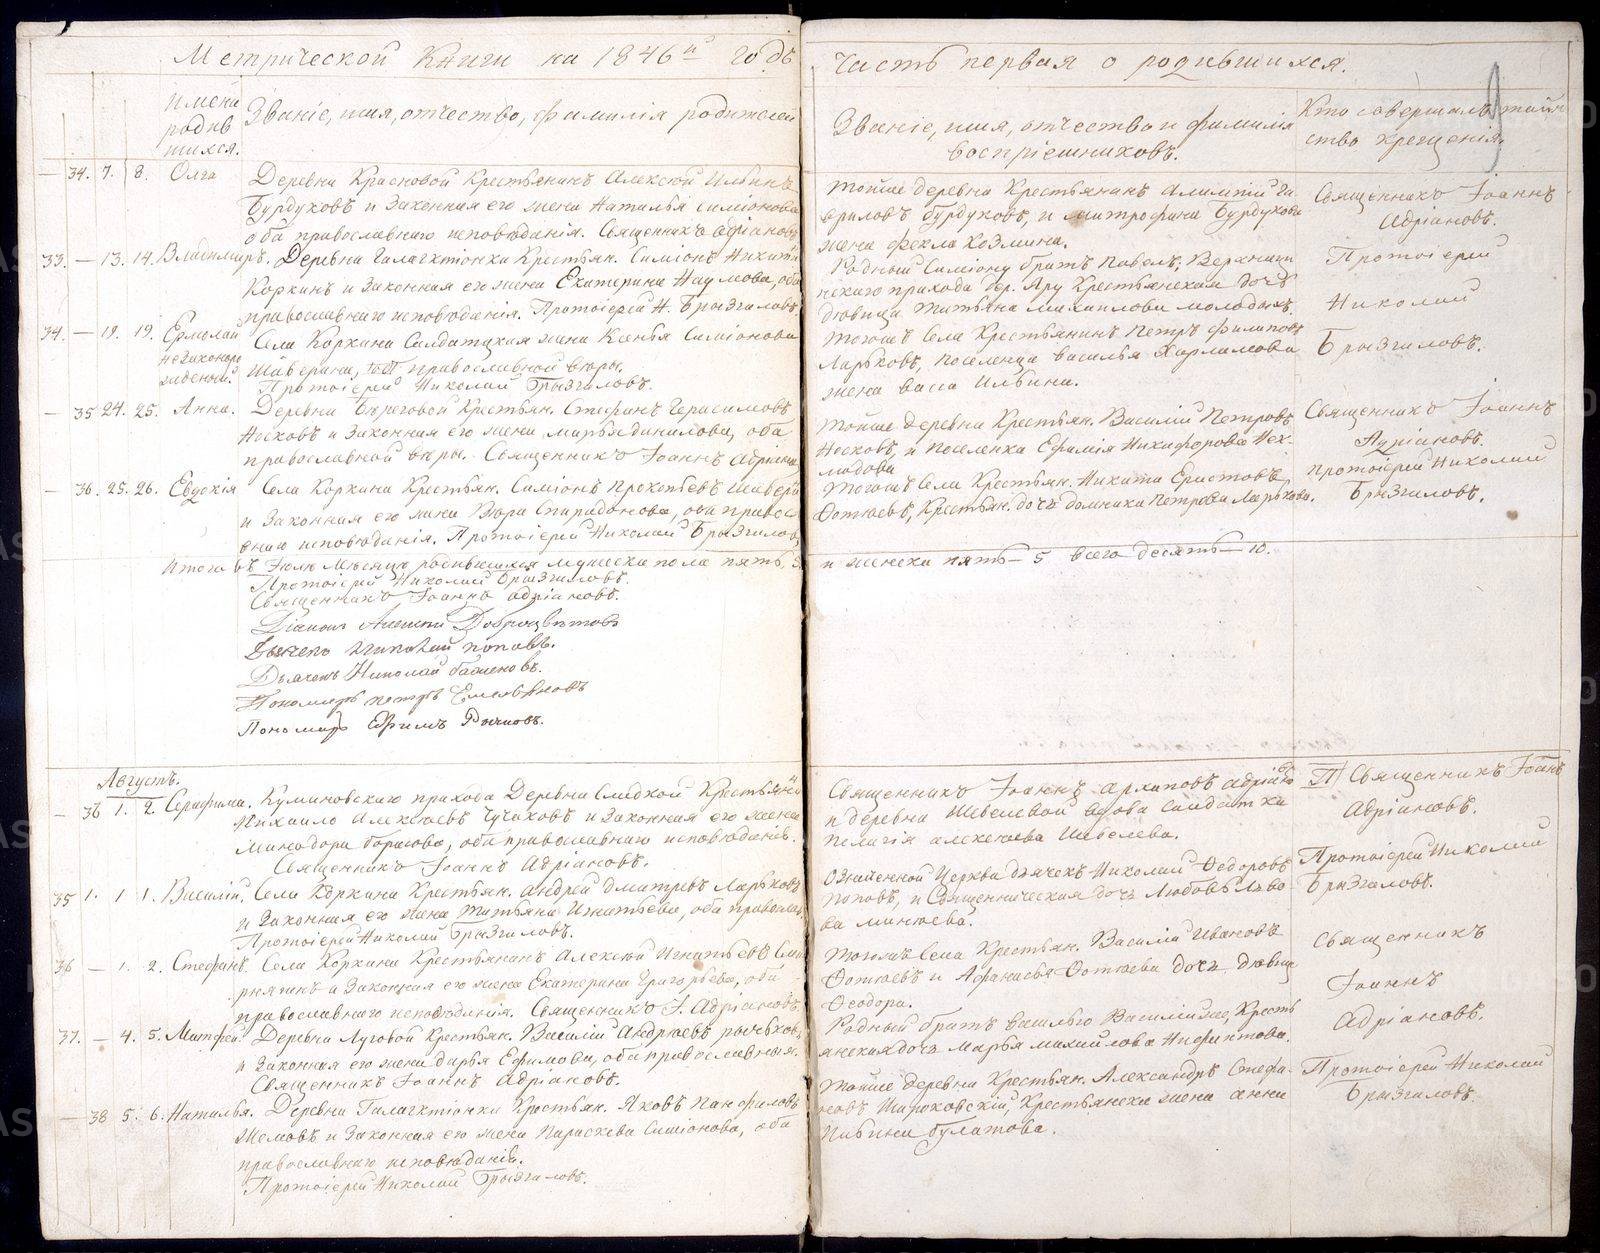 Метрической Книги на 1846й годъ
имена
родив
шихся.
Званіе, имя, отчество, фамилія родителей
34. 7. 8. Олга
Деревни Красновой Крестьянинъ Алексѣй Ильинъ
Бурдуковъ и Законная его жена Наталья Симіонова
оба православнаго исповѣданія. Священникъ Адріановъ
33. 13. 14. Владимиръ. Деревни Галагхтіонки Крестьян. Симіонъ Никитинъ
Коркинъ и Законная его жена Екатерина Наумова, оба
православнаго исповѣданія. Протоіерей Н. Брызгаловъ
34 19. 19. Ермолай
незаконоро
жденный.
Села Коркина Салдатская жена Ксенья Симіонова
Шаверина, православной вѣры.
Протоіерей Николай Брызгаловъ.
35 24. 25. Анна.
Деревни Береговой Крестьян. Стефанъ Герасимовъ
Носковъ и Законная его жена Марья Данилова, оба
православной вѣры. Священникъ Іоаннъ Адріановъ
36. 25. 26. Евдокія
Села Коркина Крестьян. Симіонъ Прокопьевъ Шаверинъ
и Законная его жена Вѣра Спиридонова, оба правос
внаго исповѣданія. Протоіерей Николай Брызгаловъ
Итого въ Іюлѣ Мѣсяцѣ родившихся мужеска пола пять 5
Протоіерей Николай Брызгаловъ.
Священникъ Іоаннъ Адріановъ.
Діаконъ Алексѣй Доброцвѣтовъ
Дьячекъ Николай Поповъ.
Дьячекъ Николай Баженовъ.
Пономарь Петръ Емельяновъ
Пономарь Ефимъ Рычковъ.
Августъ.
36 1. 2. Серафима.
Кулиновскаго прихода Деревни Сладкой Крестьянинъ
Михайло Алексѣевъ Чучковъ и Законная его жена
Минодора Борисова, оба православнаго исповѣданія.
Священникъ Іоаннъ Адріановъ.
35 1. 1. Василій.
Села Коркина Крестьян. Андрей Дмитревъ Ларьковъ
и Законная его жена Татьяна Игнатьева, оба православ.
Протоіерей Николай Брызгаловъ.
36 1. 2. Стефанъ.
Села Коркина Крестьянинъ Алексѣй Игнатьевъ
и Законная его жена Екатерина Григорьева, оба
православнаго исповѣданія. Священникъ І. Адріановъ.
37. 4. 5. Матфей.
Деревни Луговой Крестьян. Василій Андрѣевъ Рычковъ
и Законная его жена Дарья Ефимова, оба православныя.
Священникъ Іоаннъ Адріановъ.
38 5. 6. Наталья.
Деревни Галагхтіонки Крестьян. Яковъ Панфиловъ
и Законная его жена Параскева Симіонова, оба
православнаго исповѣданія.
Протоіерей Николай Брызгаловъ.
Часть первая о родившихся.
Званіе, имя, отчество и фамилія
воспріемниковъ.
Кто совершалъ таин
ство крещенія.
9
Тойже деревни Крестьянинъ Алимпій Га
вриловъ Бурдуковъ, и Митрофана Бурдукова
жена Фекла Козмина.
Священникъ Іоаннъ
Адріановъ.
Родный Симіону братъ Павелъ; Верхний
нскаго прихода дер. Яру Крестьянская дочь
дѣвица Татьяна Михаилова
Протоіерей
Николай
Брызгаловъ.
Тогожъ Села Крестьянинъ Петръ Филиповъ
Ларьковъ, поселенца Василья Харламова
жена Васса Ильина.
Тойже деревни Крестьян. Василій Петровъ
Носковъ, и Поселенка Ефимія Никифорова Нех-
людова
Священникъ Іоаннъ
Адріановъ.
Тогожъ Села Крестьян. Никита Еристовъ
Фотѣевъ, Крестьян. дочь Домника Петрова Ларькова.
Протоіерей Николай
Брызгаловъ.
и женска пять – 5 всего десять – 10.
Священникъ Іоаннъ Архиповъ Адріановъ
и деревни Шевелевой вдова Салдатка
Пелагія Алексѣева Шевелева.
Священникъ Іоаннъ
Адріановъ.
Означенной Церкви дьячекъ Николай Федоровъ
Поповъ, и Священническая дочь Любовь Льво
ва Минѣева.
Протоіерей Николай
Брызгаловъ.
Тогожъ Села Крестьян. Василій Ивановъ
Фотѣевъ и Афанасья Фотѣева дочь дѣвица
Феодора.
Священникъ
Іоаннъ
Адріановъ.
Родный братъ Василью Василій же, Кресть
янская дочь Марья Михайлова Нифантова.
Тойже деревни Крестьян. Александръ Стефа-
новъ Широковскій, Крестьянска жена Анна
Булатова.
Протоіерей Николай
Брызгаловъ.